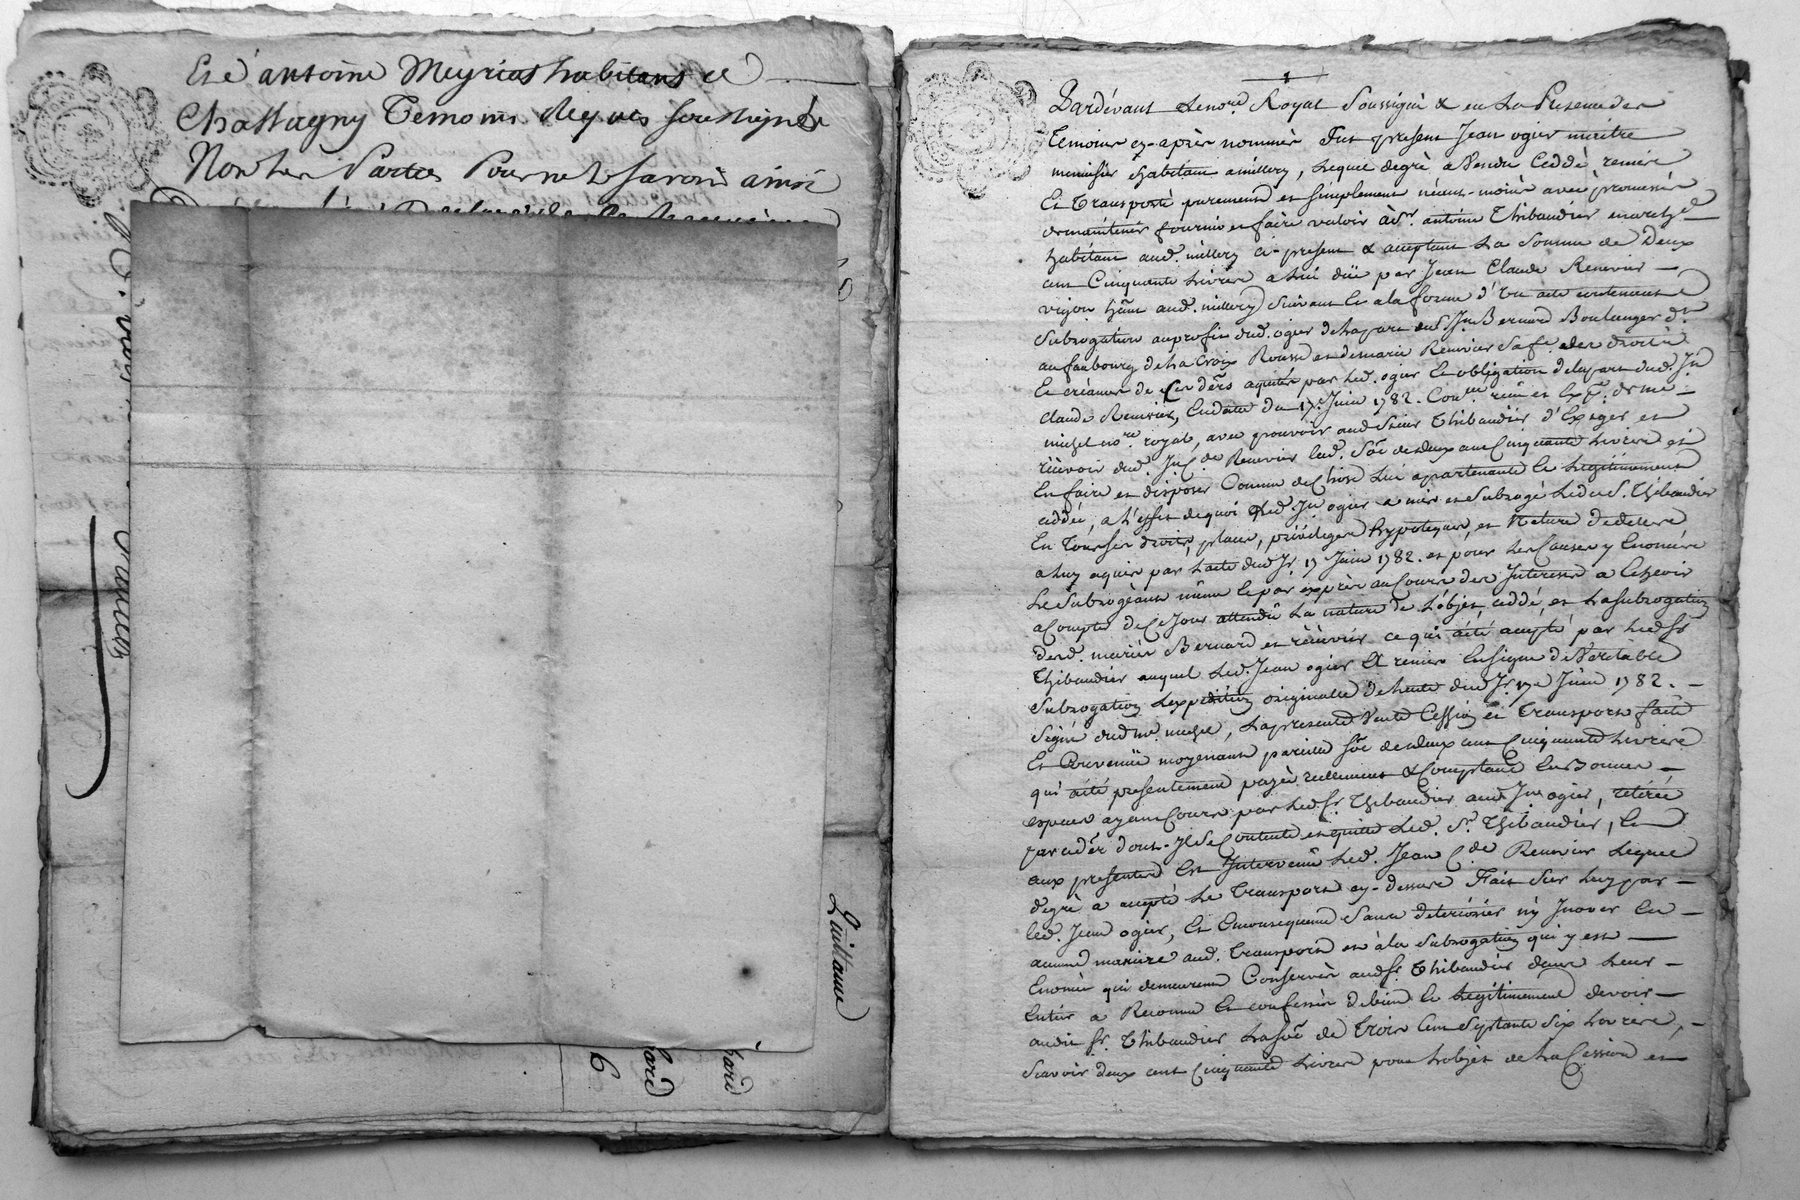 Et é antoine Meyrias habitans de
Chassagny Temoins Requis soussignés
Non les Parties Pour ne le savoir ainsi
Quittance
6
Pardevant Le no.re Royal Soussigné & en La Presence des
temoins cy-après nommés Fut present Jean ogier maitre
menuisier habitant a millery, Lequel de gré, a Vendu Ceddé remis
Et Transporté purement et simplement néant-moins avec promesse
de maintenir fournir et faire valoir à Sr. antoine Thibaudier march.d
habitant aud. millery ci-present & acceptant La Somme de Deux
cent Cinquante Livres a lui düe par Jean Claude Renevier
vigon hânt aud. millery Suivant Et a la forme d'un acte contenant
Subrogation au profit dud. ogier de la part du S. Jn Bernard Boulanger dt
au faubourg de La Croix Rousse et de marie Renevier Sa fe. des droits
Et créances de Ces ders aquités par led. ogier Et obligation de la part dud. Jn
Claude Renevier, En date du 17. Juin 1782. Con.llé reçu et Exp. de me
michel no.re royal, avec pouvoir aud Sieur Thibaudier d'Exiger et
reçevoir dud. Jn C.de Renevier lad. Soẽ de deux cent Cinquante Livres, et
En faire et disposer Comme de Chose Lui apartenante Et Legitimement
ceddée, a l'effet de quoi Led. Jn ogier a mis et Subrogé Led. S. Thibaudier
En Tous ses droits, place, privileges hypoteques, et Nature de dettes
a luy aquis par Lacte dud. Jr. 17 Juin 1782. et pour les Causes y Enoncées
Le Subrogeant même Et par exprès au Cours des Interests a Echeoir
a Compter de Ce Jour attendû La nature de L'objet ceddé, et La Subrogation
desd. mariés Bernard et Renevier ce qui a été accepté par Led. Sr.
Thibaudier auquel Led. Jean ogier A remis En Signe de Veritable
Subrogation L'expedition originalle de Lacte dud. Jr. 17e Juin 1782.
Signé dud me michel, La presente Vente Cession et Transport faite
Et Convenüe moyenant pareille Soẽ de deux cent Cinquante Livres
qui a été presentement payée reellement & Comptant En Bonnes
especes ayant Cours par Led. Sr. Thibaudier aud. Jn ogier, retirée
par cedér dont il Se Contente et quitte Led. Sr. Thibaudier, Et
aux presentes Est Intervenü Led. Jean C.de Renevier Lequel
de gré a accepté Le Transport cy-dessus Fait Sur luy par
led. Jean ogier, Et En Consequence Sans deteriorer ny Inover En
aucune maniere aud. Transport et à la Subrogation qui y est
Enoncée qui demeurent Conservés aud. Sr. Thibaudier dans Leur
Entier a Reconnu Et confessé de bien Et Legitimement devoir
audit Sr. Thibaudier La Soẽ de Trois Cent Septante Six Livres,
Scavoir deux cent Cinquante Livres pour L'objet de La Cession et